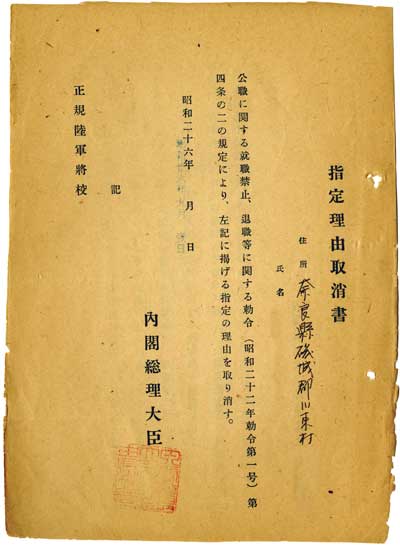 指定理由取消書
住所 奈良縣磯城郡川東村
氏名
公職に関する就職禁止、退職等に関する勅令（昭和二十二年勅令第一号）第
四条の二の規定により、左記に掲げる指定の理由を取り消す。
昭和二十六年　月　日
内閣総理大臣
記
正規陸軍將校